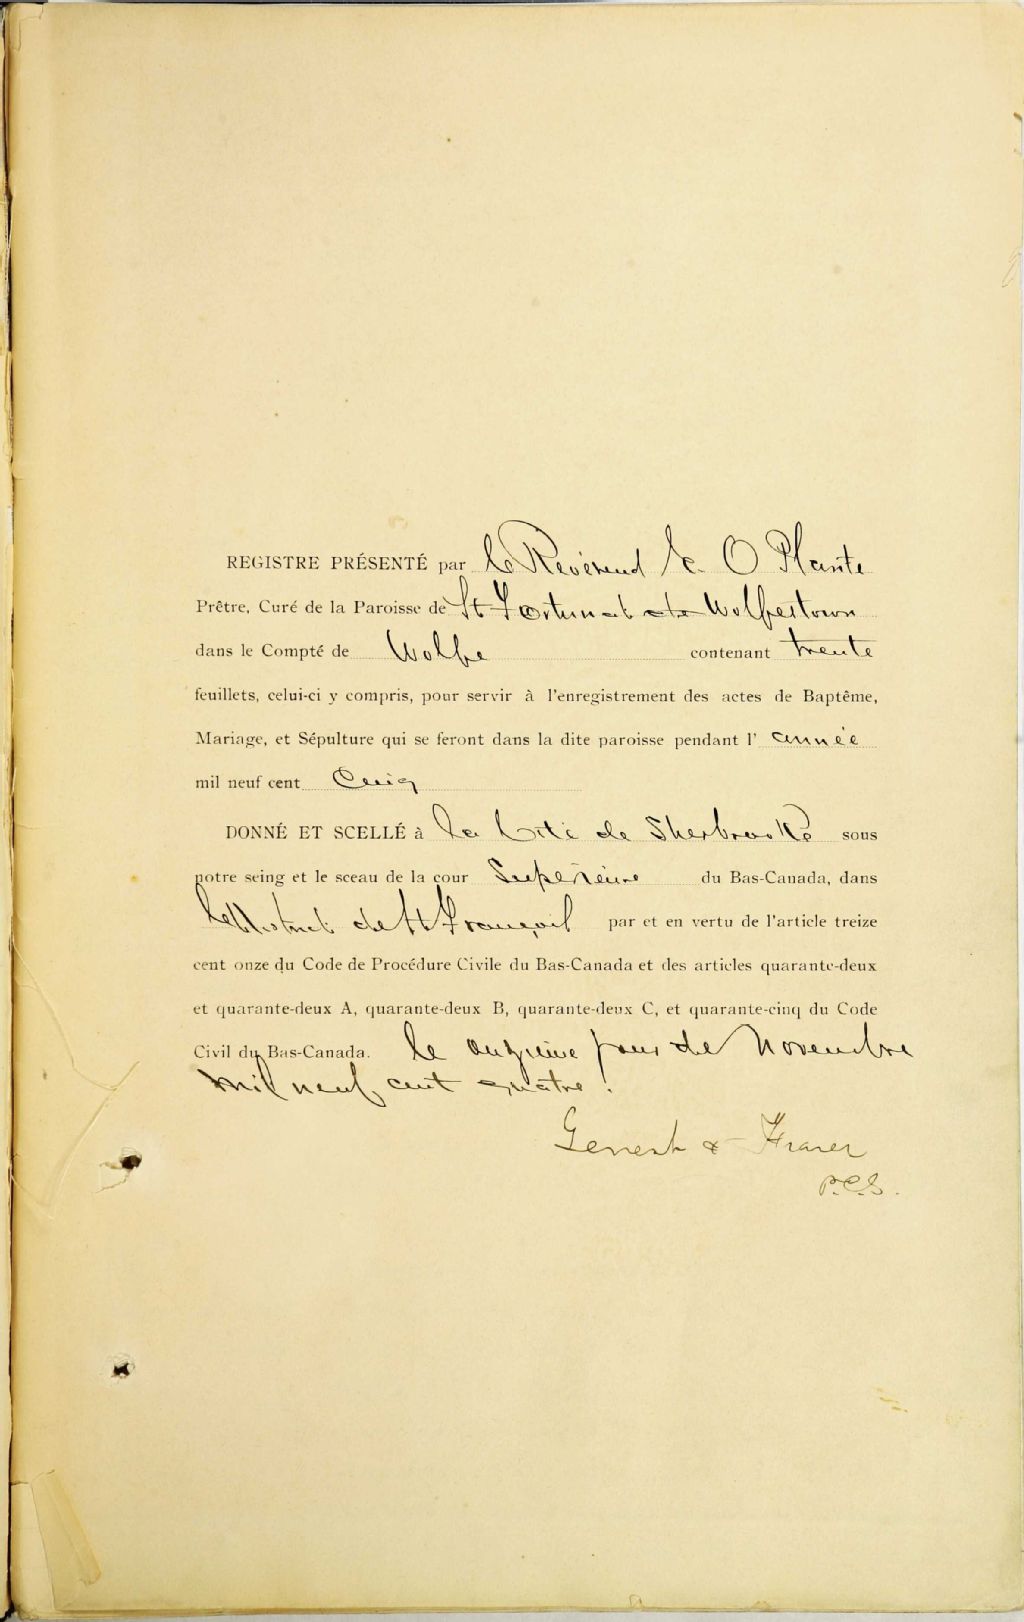 REGISTRE PRÉSENTÉ par le Révérend O Plante
Prêtre, Curé de la Paroisse de St Fortunat de Wolfestown
dans le Compté de Wolfe contenant trente
feuillets, celui-ci y compris, pour servir à l'enregistrement des actes de Baptême,
Mariage, et Sépulture qui se feront dans la dite paroisse pendant l' année
mil neuf cent Cinq
DONNÉ ET SCELLÉ à la Cité de Sherbrooke sous
notre seing et le sceau de la cour Supérieure du Bas-Canada, dans
le District de St François par et en vertu de l'article treize
cent onze du Code de Procédure Civile du Bas-Canada et des articles quarante-deux
et quarante-deux A, quarante-deux B, quarante-deux C, et quarante-cinq du Code
Civil du Bas-Canada. le onzième jour de Novembre
mil neuf cent quatre.
Genest & Fraser
P.C.S.